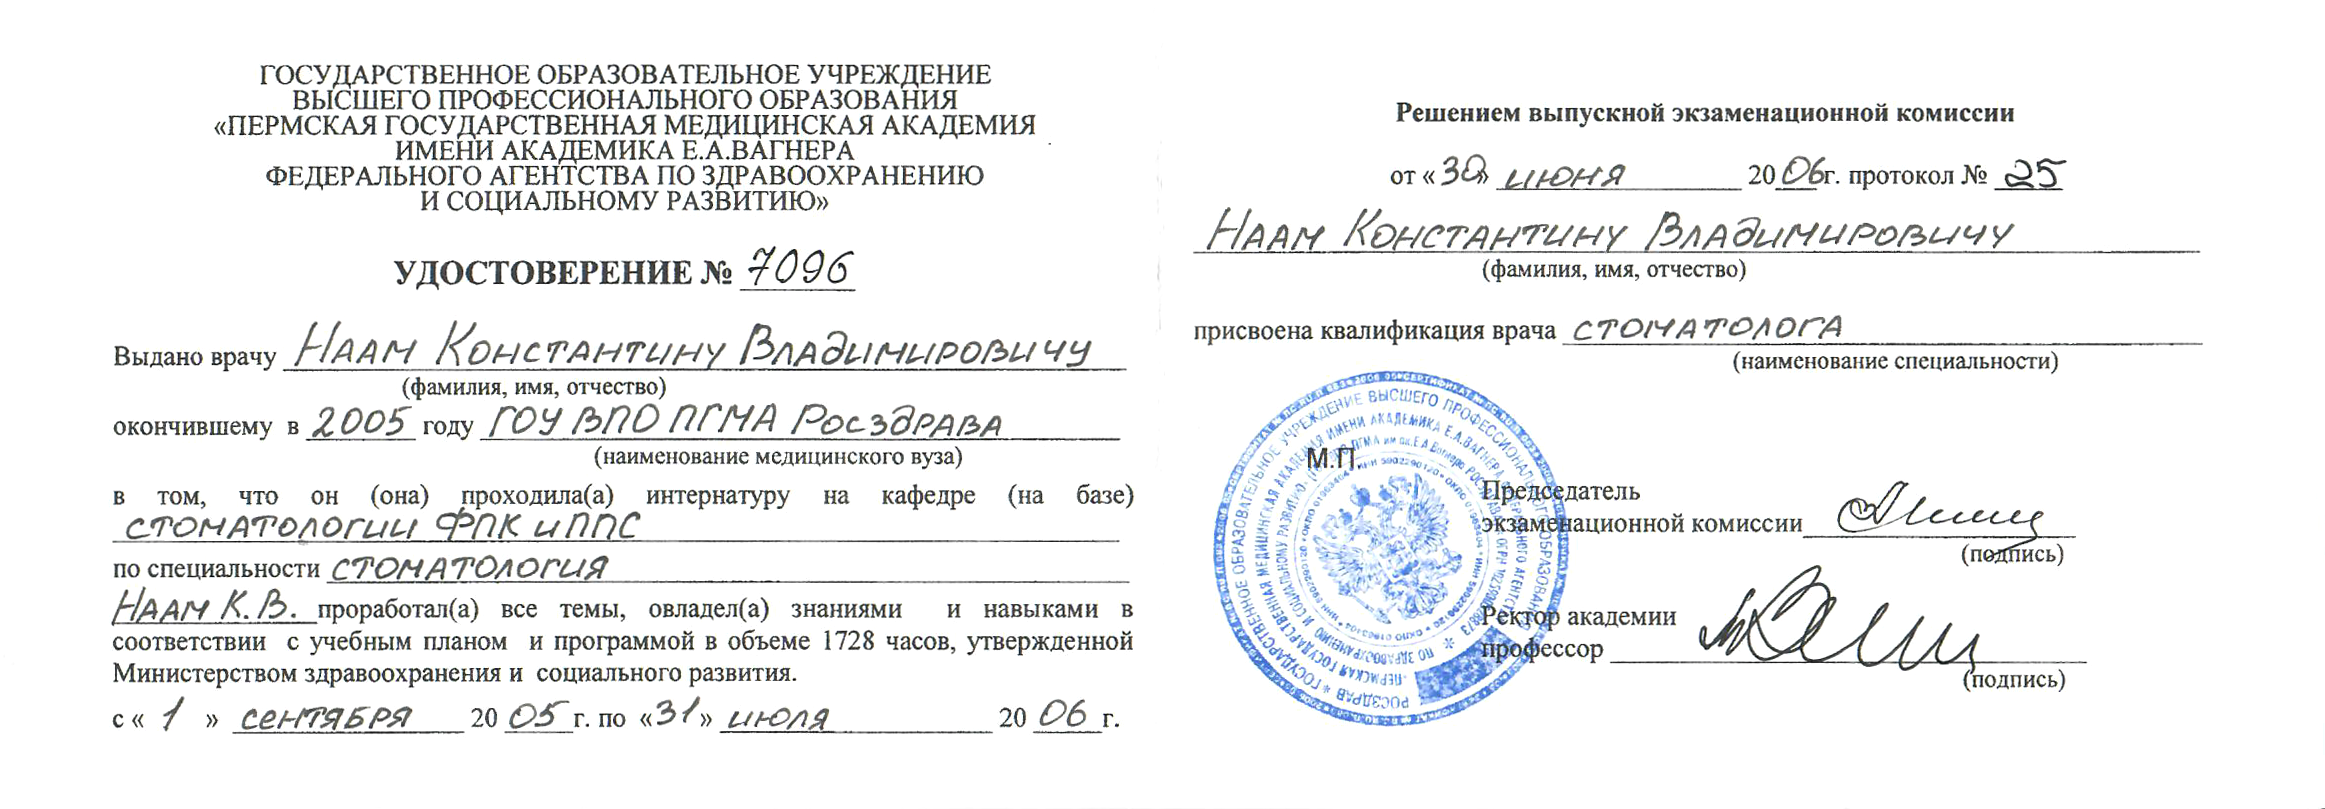 ГОСУДАРСТВЕННОЕ ОБРАЗОВАТЕЛЬНОЕ УЧРЕЖДЕНИЕ
ВЫСШЕГО ПРОФЕССИОНАЛЬНОГО ОБРАЗОВАНИЯ
«ПЕРМСКАЯ ГОСУДАРСТВЕННАЯ МЕДИЦИНСКАЯ АКАДЕМИЯ
ИМЕНИ АКАДЕМИКА Е.А.ВАГНЕРА
ФЕДЕРАЛЬНОГО АГЕНТСТВА ПО ЗДРАВООХРАНЕНИЮ
И СОЦИАЛЬНОМУ РАЗВИТИЮ»
УДОСТОВЕРЕНИЕ № 7096
Выдано врачу Наам Константину Владимировичу
(фамилия, имя, отчество)
окончившему в 2005 году ГОУ ВПО ПГМА Росздрава
(наименование медицинского вуза)
в том, что он (она) проходила(а) интернатуру на кафедре (на базе)
стоматологии ФПК и ППС
по специальности стоматология
Наам К.В. проработал(а) все темы, овладел(а) знаниями и навыками в
соответствии с учебным планом и программой в объеме 1728 часов, утвержденной
Министерством здравоохранения и социального развития.
с « 1 » сентября 20 05 г. по «31» июля 20 06 г.
Решением выпускной экзаменационной комиссии
от «30» июня 20 06 г. протокол № 25
Наам Константину Владимировичу
(фамилия, имя, отчество)
присвоена квалификация врача стоматолога
(наименование специальности)
М.П.
Председатель
экзаменационной комиссии
(подпись)
Ректор академии
профессор
(подпись)